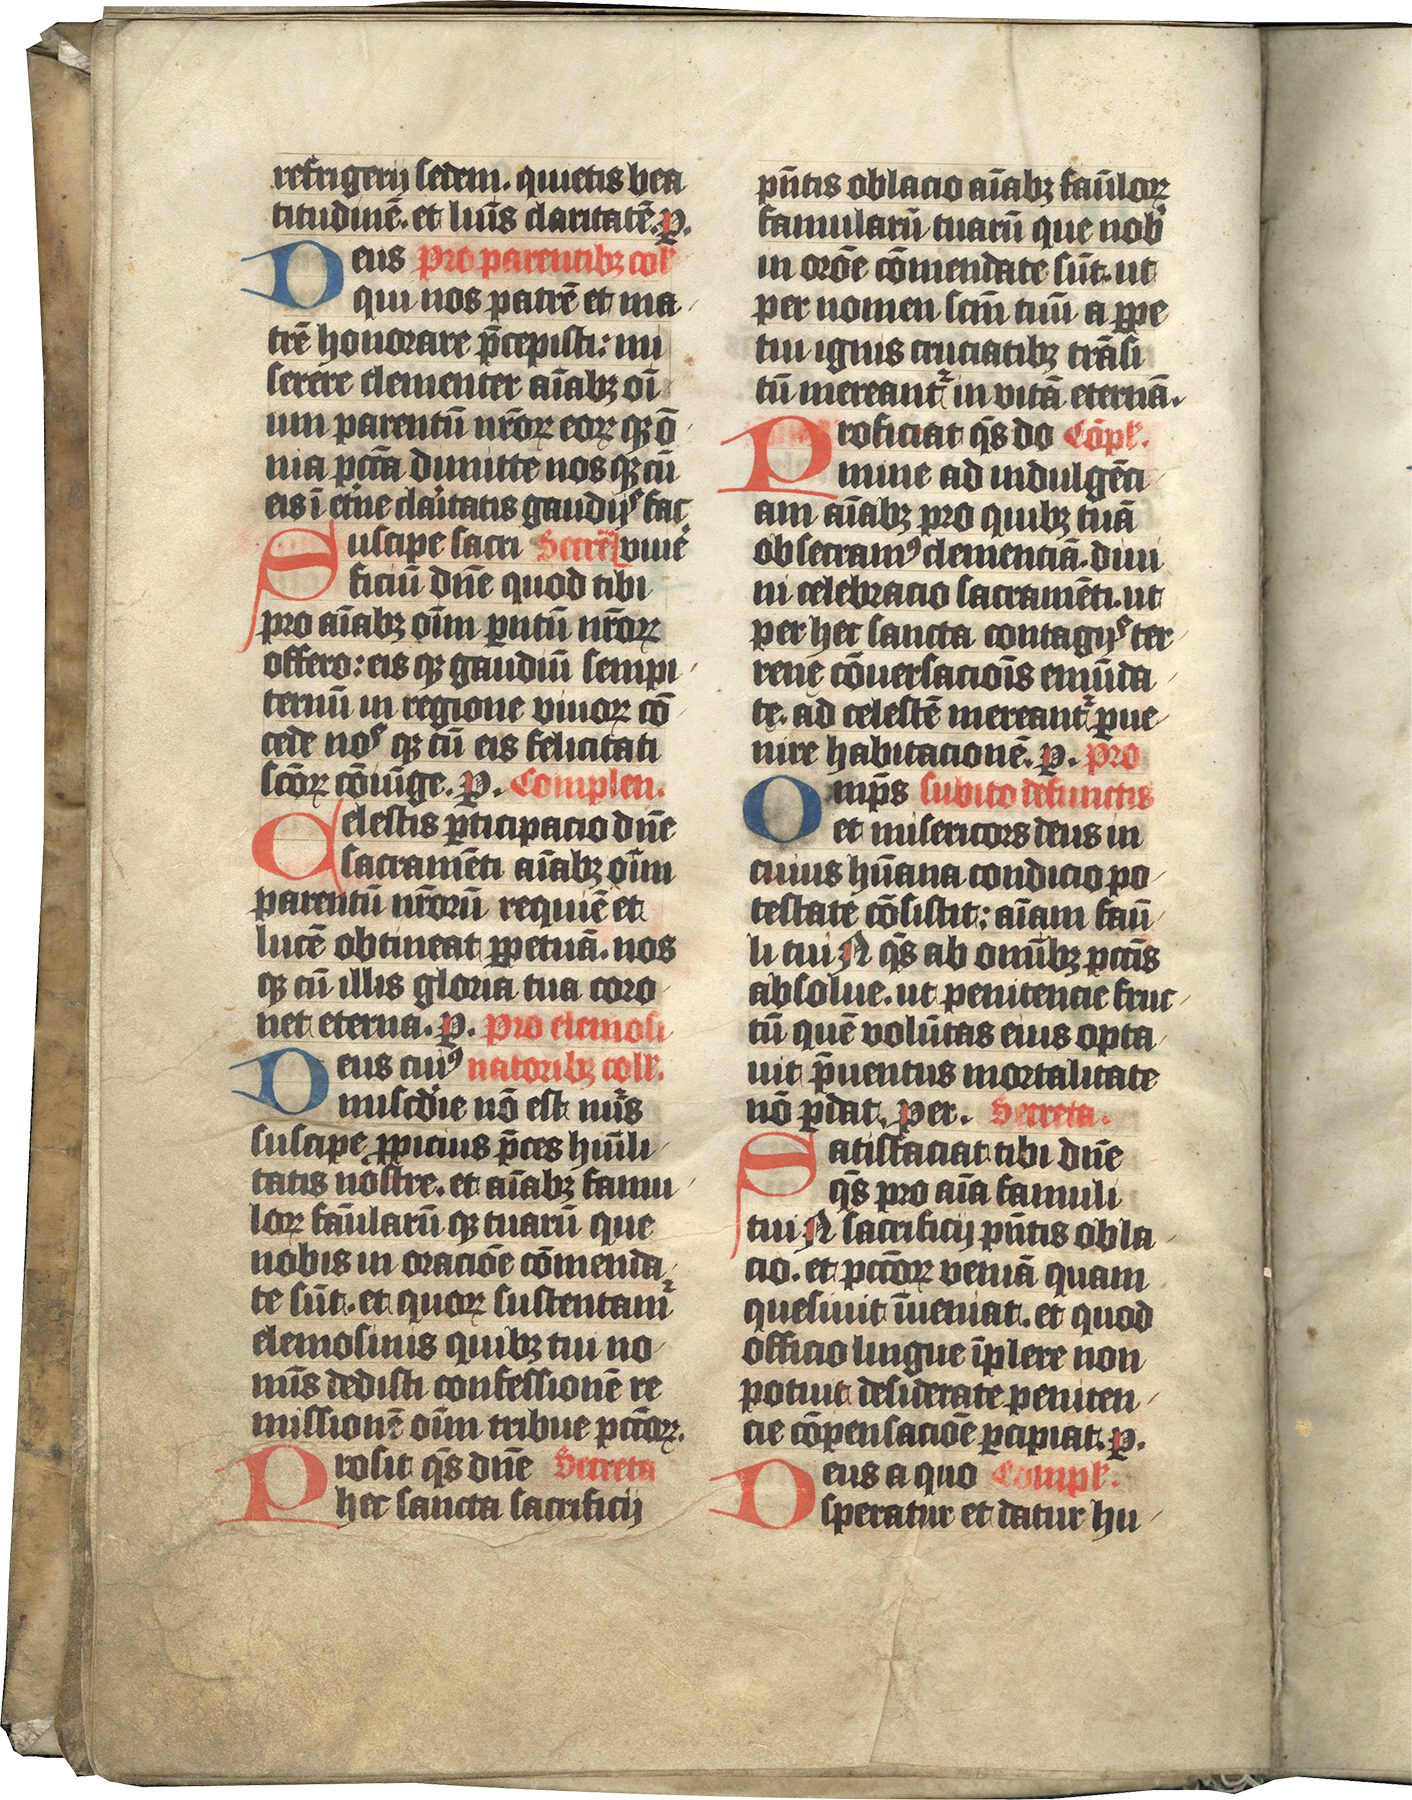 refrigerij sedem. quietis bea
titudinē. et lui̅s claritatē. p̲.
Deus Pro parentibꝫ coll̵
qui nos patrē et ma
trē honorare p̄cepisti: mi
serere clementer ai̅abꝫ oi̅
um parentū nr̄oꝝ eoꝝ qꝫ ō
nia pctā dimitte nos qꝫ cū
eis ī et̓ne claritatis gaudijs fac
Suscipe sacri Secre̅ viuē
ficiū dn̄e quod tibi
pro ai̅abꝫ oi̅m pntū nr̄oꝝ
offero: eis qꝫ gaudiū sempi
ternū in regione viuoꝝ cō
cede nos qꝫ cū eis felicitati
sc̄oꝝ cōiūge. p̲. Complen.
Celestis p̄ticipacio dn̄e
sacramēti ai̅abꝫ oi̅m
parentū nr̄orū requiē et
lucē obtineat ꝑpetuā. nos
qꝫ cū illis gloria tua coro
net eterna. p̲. Pro elemosi
Deus cuiꝰ natoribꝫ coll̵.
miscd̄ie nō est nūs
suscipe ꝓpicius p̄ces hūili
tatis nostre. et ai̅abꝫ famu
loꝝ fāularū qꝫ tuarū que
nobis in oraciōe cōmenda
te sūt. et quoꝝ sustentamr̃
elemosinis quibꝫ tui no
mīs dedisti confessionē re
missionē oi̅m tribue pctōꝝ.
Prosit qs̄ dn̄e Secreta
hec sancta sacrificij
pn̄tis oblacio ai̅abꝫ fāuloꝝ
famularū tuarū que nob̓
in orōe cōmendate sūt. ut
per nomen sc̄m tuū a ꝑpe
tui ignis cruciatibꝫ trāsi
tū mereantr̃ in vitā eternā.
Proficiat qs̄ do Cōpl̵.
mine ad indulgēci
am ai̅abꝫ pro quibꝫ tuā
obsecramꝰ clemenciā. diui
ni celebracio sacramēti. ut
per hec sancta contagijs ter
rene cōuersaciōis emūda
te. ad celestē mereantr̃ ꝑue
nire habitacionē. p̲. Pro
Omp̄s subito defunctis
et misericors deus in
cuius hūana condicio po
testate cōsistit: ai̅am fāu
li tui N qs̄ ab omībꝫ pctīs
absolue. ut penitencie fruc
tū quē volūtas eius opta
uit p̄uentus mortalitate
nō ꝑdat. per. Secreta.
Satisfaciat tibi dn̄e
qs̄ pro ai̅a famuli
tui N sacrificij pn̄tis obla
cio. et pctōꝝ veniā quam
quesiuit īueniat. et quod
officio lingue īplere non
potuit desiderate peniten
cie cōpensaciōe ꝑcipiat. p̲.
Deus a quo Compl̵.
speratur et datur hu